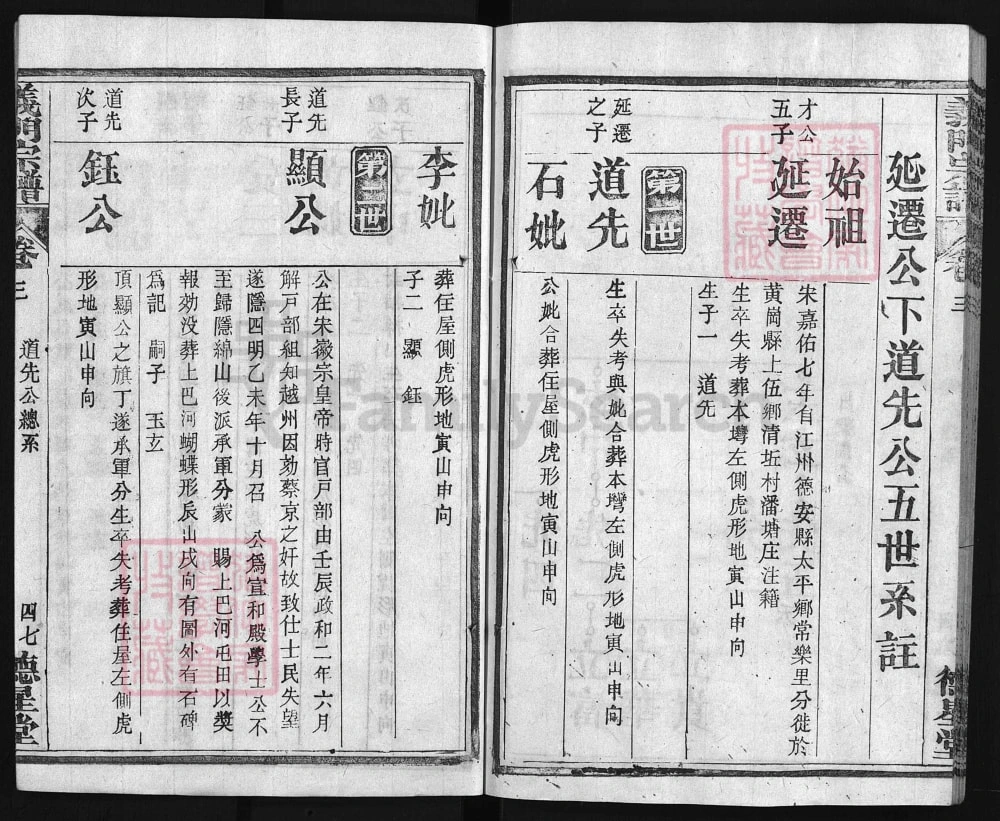 延遷公下道先公五世系註
始祖
才公
五子
延遷
宋嘉佑七年自江州德安縣太平鄉常樂里分徙於
黃崗縣上伍鄉清坵村潘塘庄注籍
生卒失考葬本塆左側虎形地寅山申向
生子一 道先
第一世
延遷
之子
道先
生卒失考與妣合葬本塆左側虎形地寅山申向
石妣
公妣合葬住屋側虎形地寅山申向
義門宗譜 卷三
德星堂
李妣
葬住屋側虎形地寅山申向
子二 顯 鈺
第二世
道先
長子
顯公
公在宋徽宗皇帝時官戸部由壬辰政和二年六月
解戸部組知越州因劾蔡京之奸故致仕士民失望
遂隱四明乙未年十月召 公爲宣和殿學士公不
至歸隱綿山後派承軍分蒙 賜上巴河屯田以奬
報効没葬上巴河蝴蝶形辰山戌向有圖外有石碑
爲記 嗣子 玉玄
道先
次子
鈺公
頂顯公之旗丁遂承軍分生卒失考葬住屋左側虎
形地寅山申向
義門宗譜 卷三 道先公總系 四七 德星堂
FamilySearch